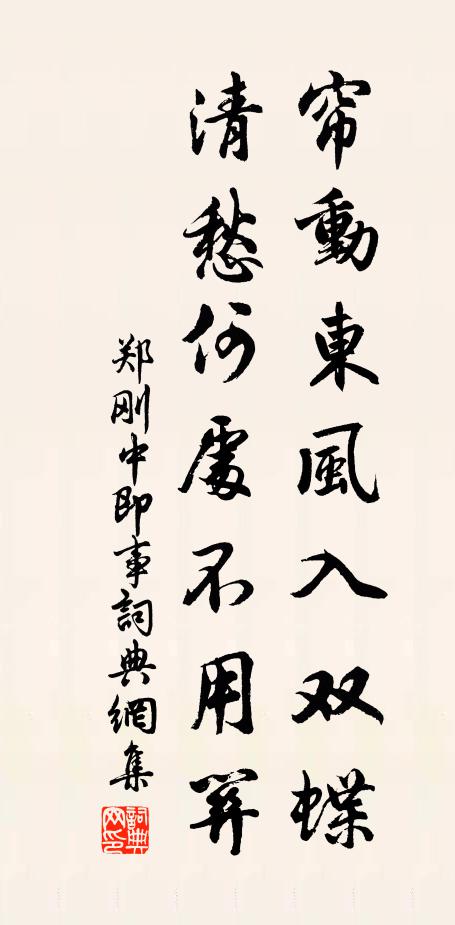 帘動東風入双蝶
清愁何處不用筭
郑刚中即事詞典網集
詞典
网印